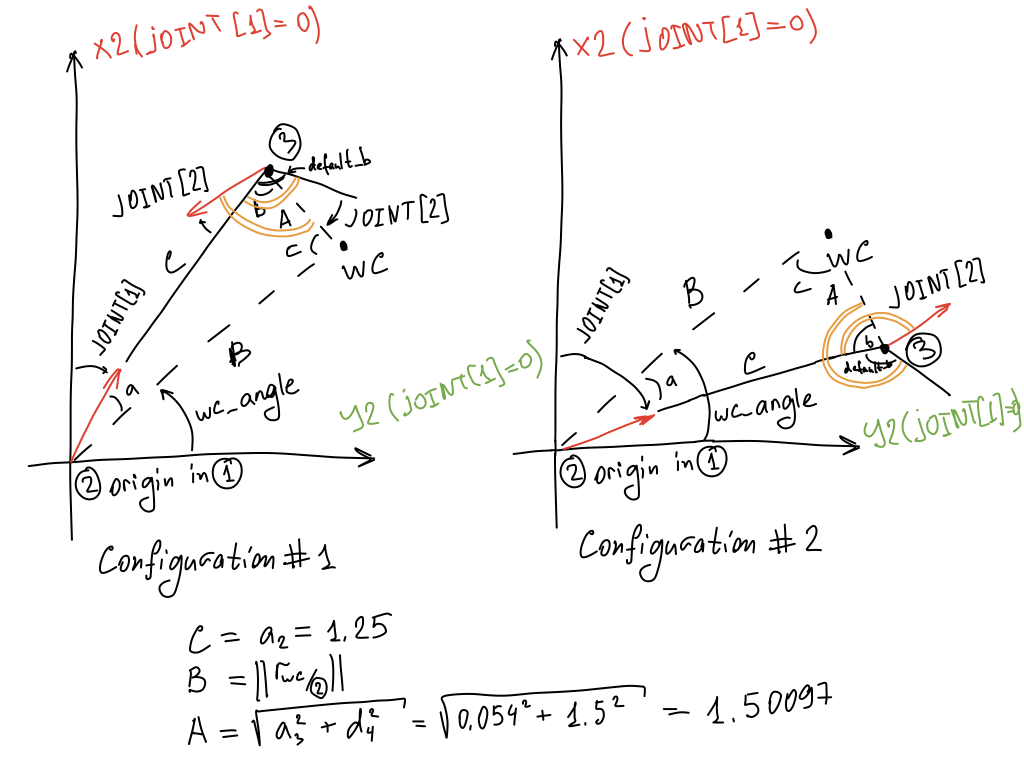 X2(JOINT[1]=0)
3
default_b
JOINT[2]
b
A
JOINT[2]
c
C
WC
JOINT[1]
B
a
wc_angle
y2(JOINT[1]=0)
2 origin in 1
Configuration #1
X2(JOINT[1]=0)
WC
c
JOINT[1]
B
A
JOINT[2]
b
3
C
default_b
a
wc_angle
y2(JOINT[1]=0)
2 origin in 1
Configuration #2
C = a₂ = 1.25
B = ||r_wc/2||
A = √(a₃² + d₄²) = √(0.054² + 1.5²) = 1.50097